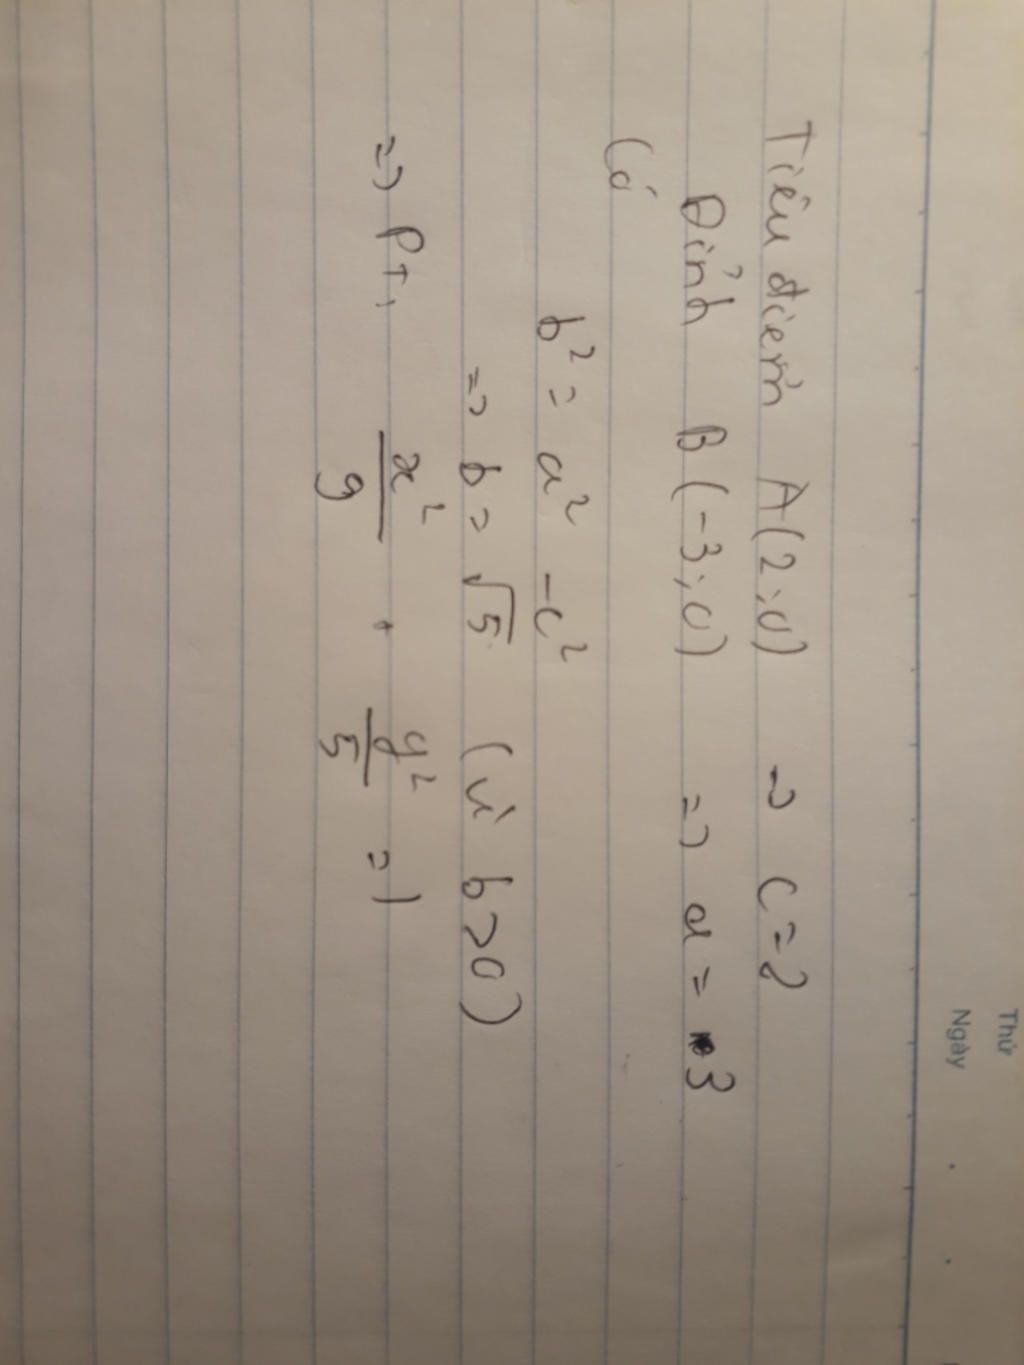 Thứ
Ngày
Tiêu điểm A(2;0) => c=2
Đỉnh B(-3;0) => a= 3
Có
b² = a² -c²
=> b = √5 (vì b>0)
=> PT, x²/9 + y²/5 =1